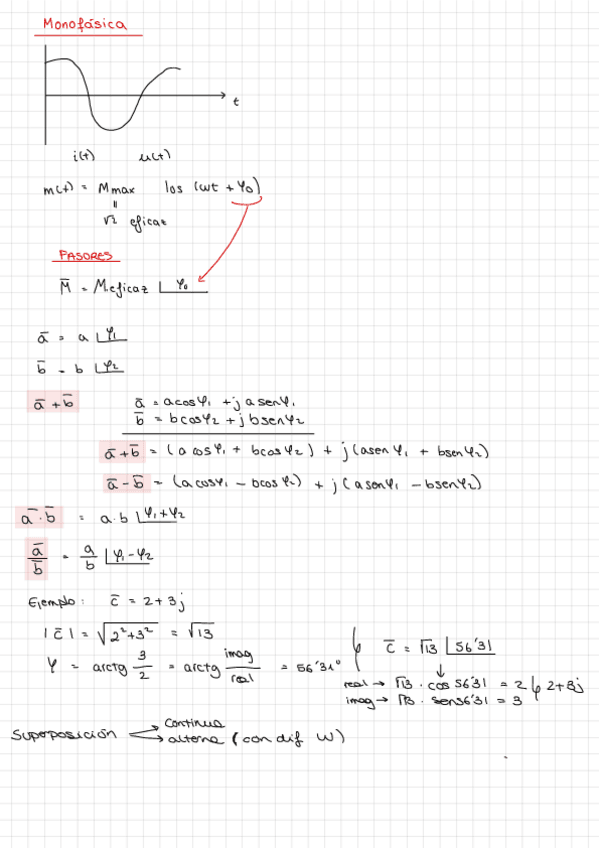 Monofásica
t
i(t) u(t)
m(t) = Mmax cos (ωt + φ₀)
=
√2 eficaz
FASORES
M̄ = Meficaz ∟φ₀
ā = a ∟φ₁
b̄ = b ∟φ₂
ā + b̄
ā = a cos φ₁ + j a sen φ₁
b̄ = b cos φ₂ + j b sen φ₂
ā + b̄ = (a cos φ₁ + b cos φ₂) + j (a sen φ₁ + b sen φ₂)
ā - b̄ = (a cos φ₁ - b cos φ₂) + j (a sen φ₁ - b sen φ₂)
ā · b̄ = a · b ∟φ₁ + φ₂
ā / b̄ = a / b ∟φ₁ - φ₂
Ejemplo: c̄ = 2 + 3j
|c̄| = √(2² + 3²) = √13
φ = arctg 3/2 = arctg imag/real = 56'31°
c̄ = √13 ∟56'31
real → √13 · cos 56'31 = 2 2+3j
imag → √13 · sen 56'31 = 3
Superposición
continua
alterna (con dif ω)